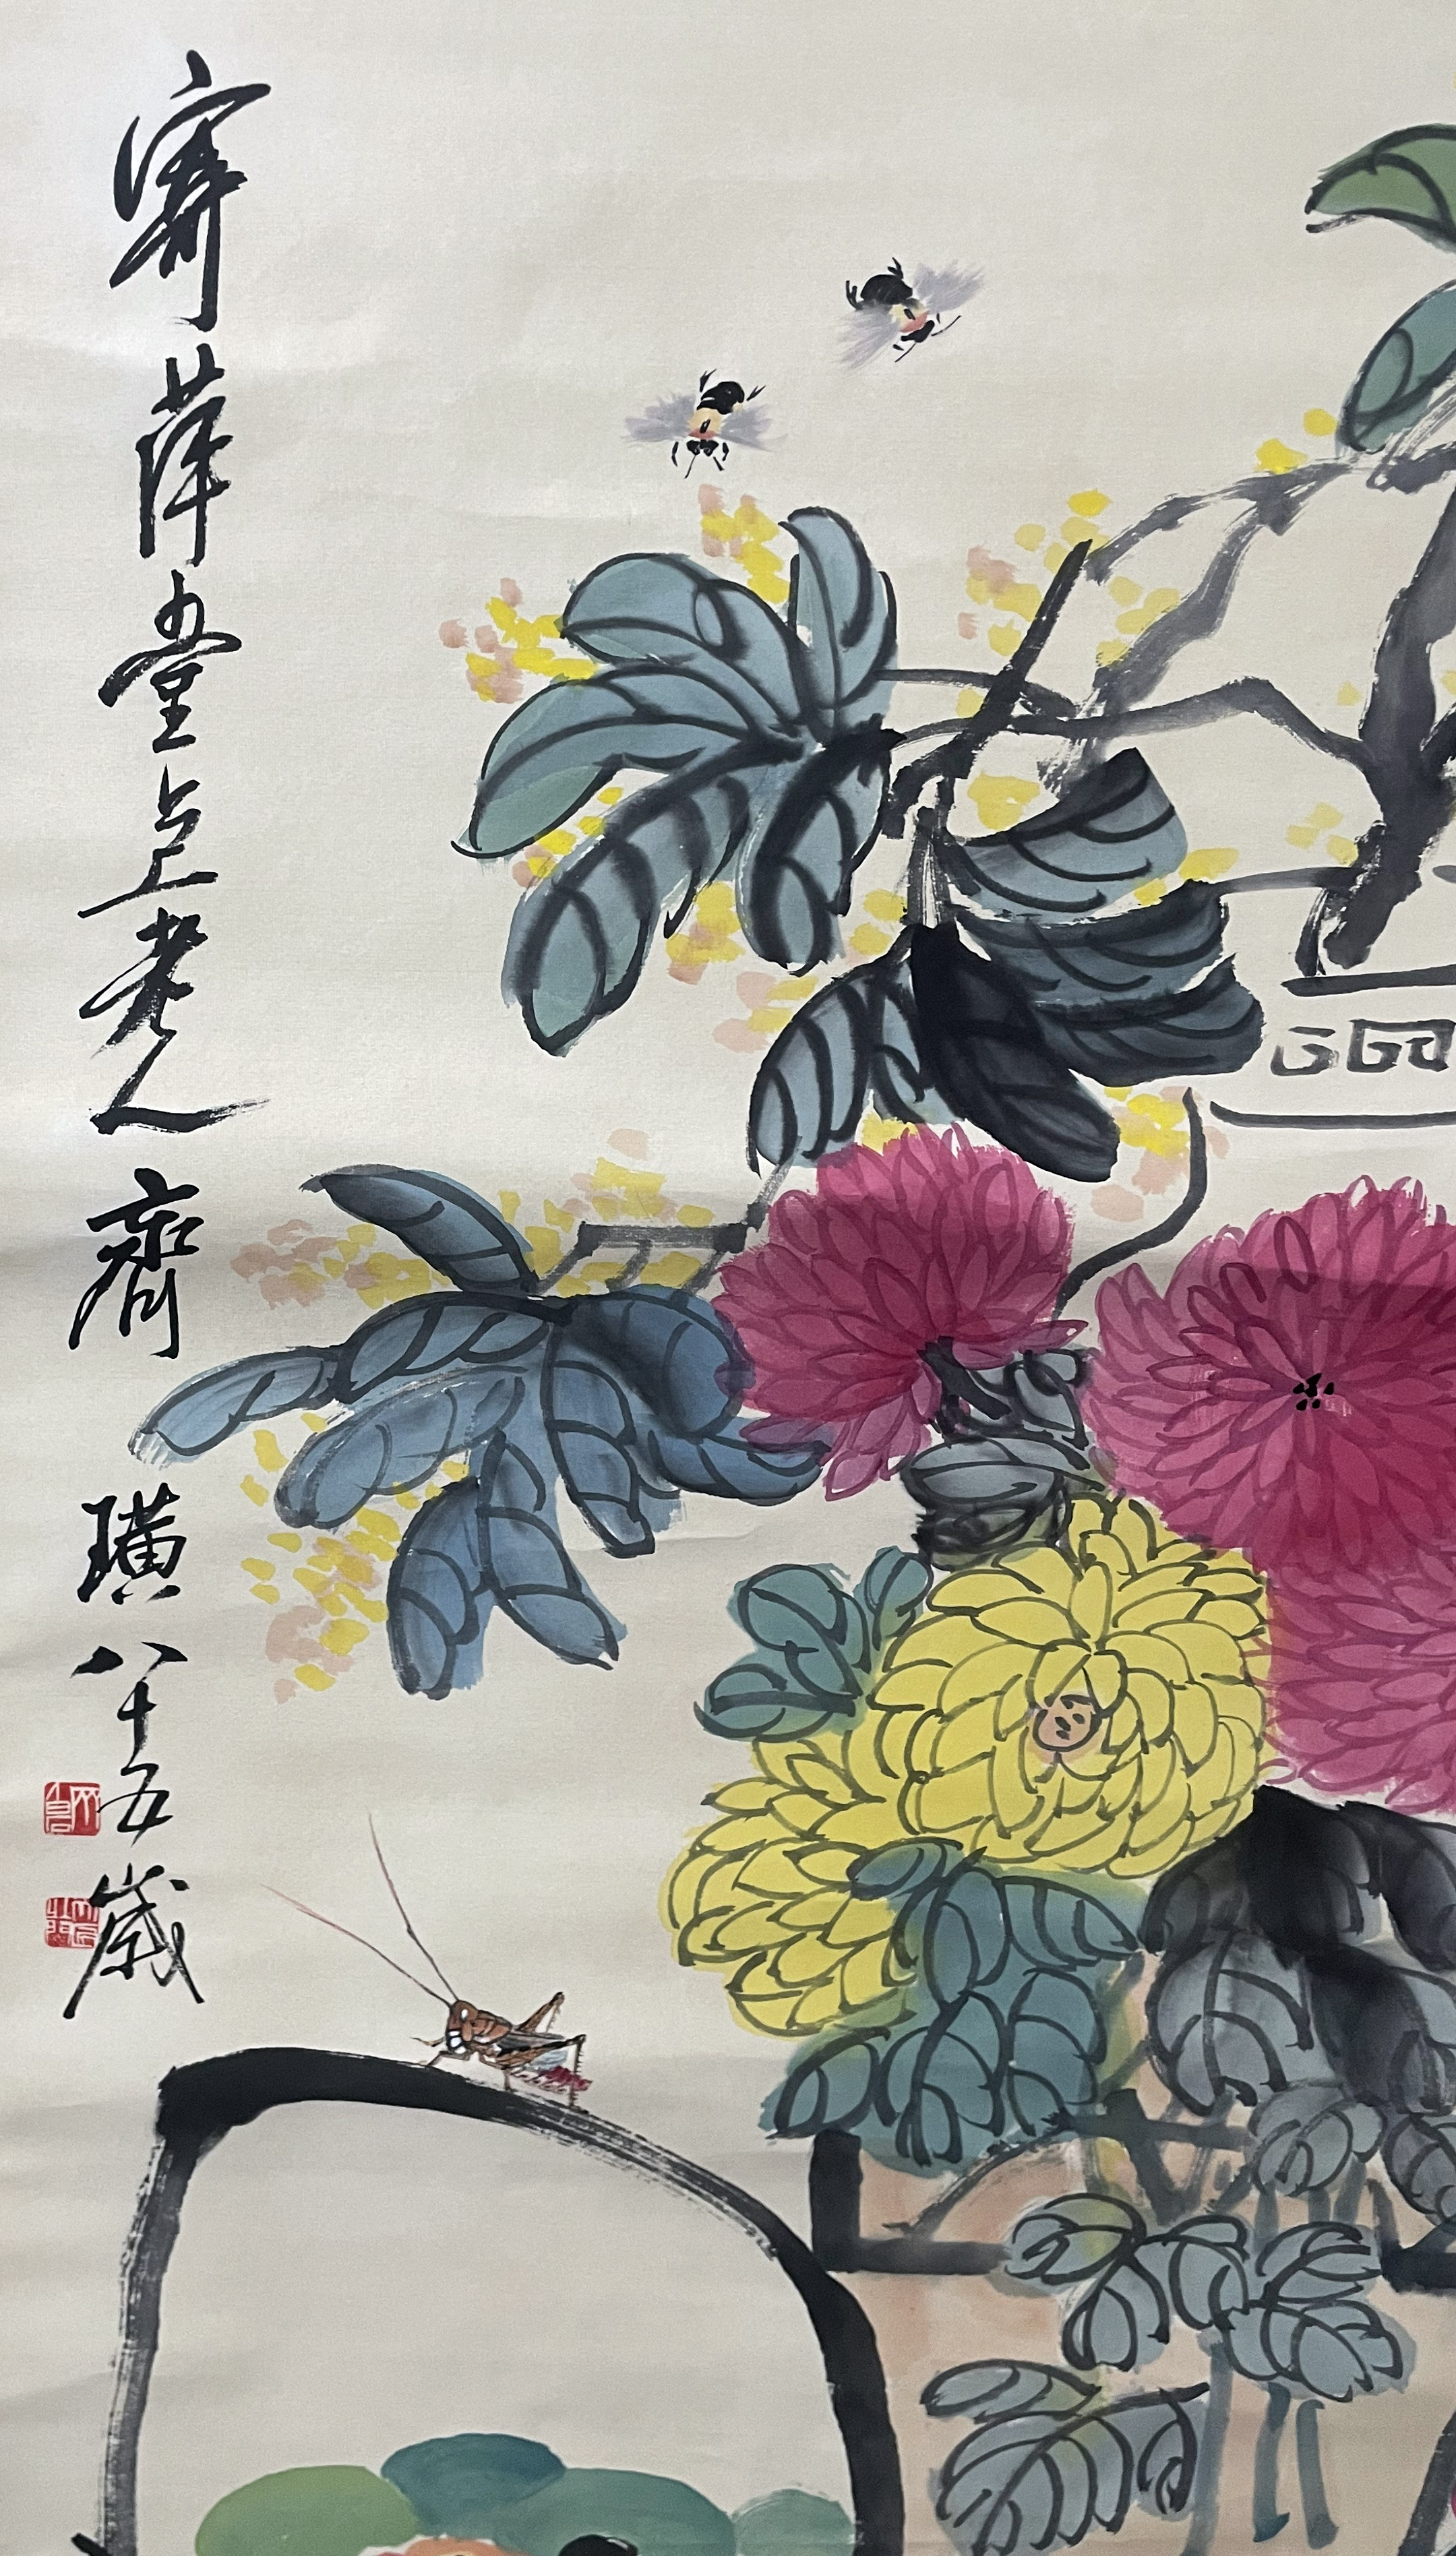 寄萍堂上老人齊璜八十五歲